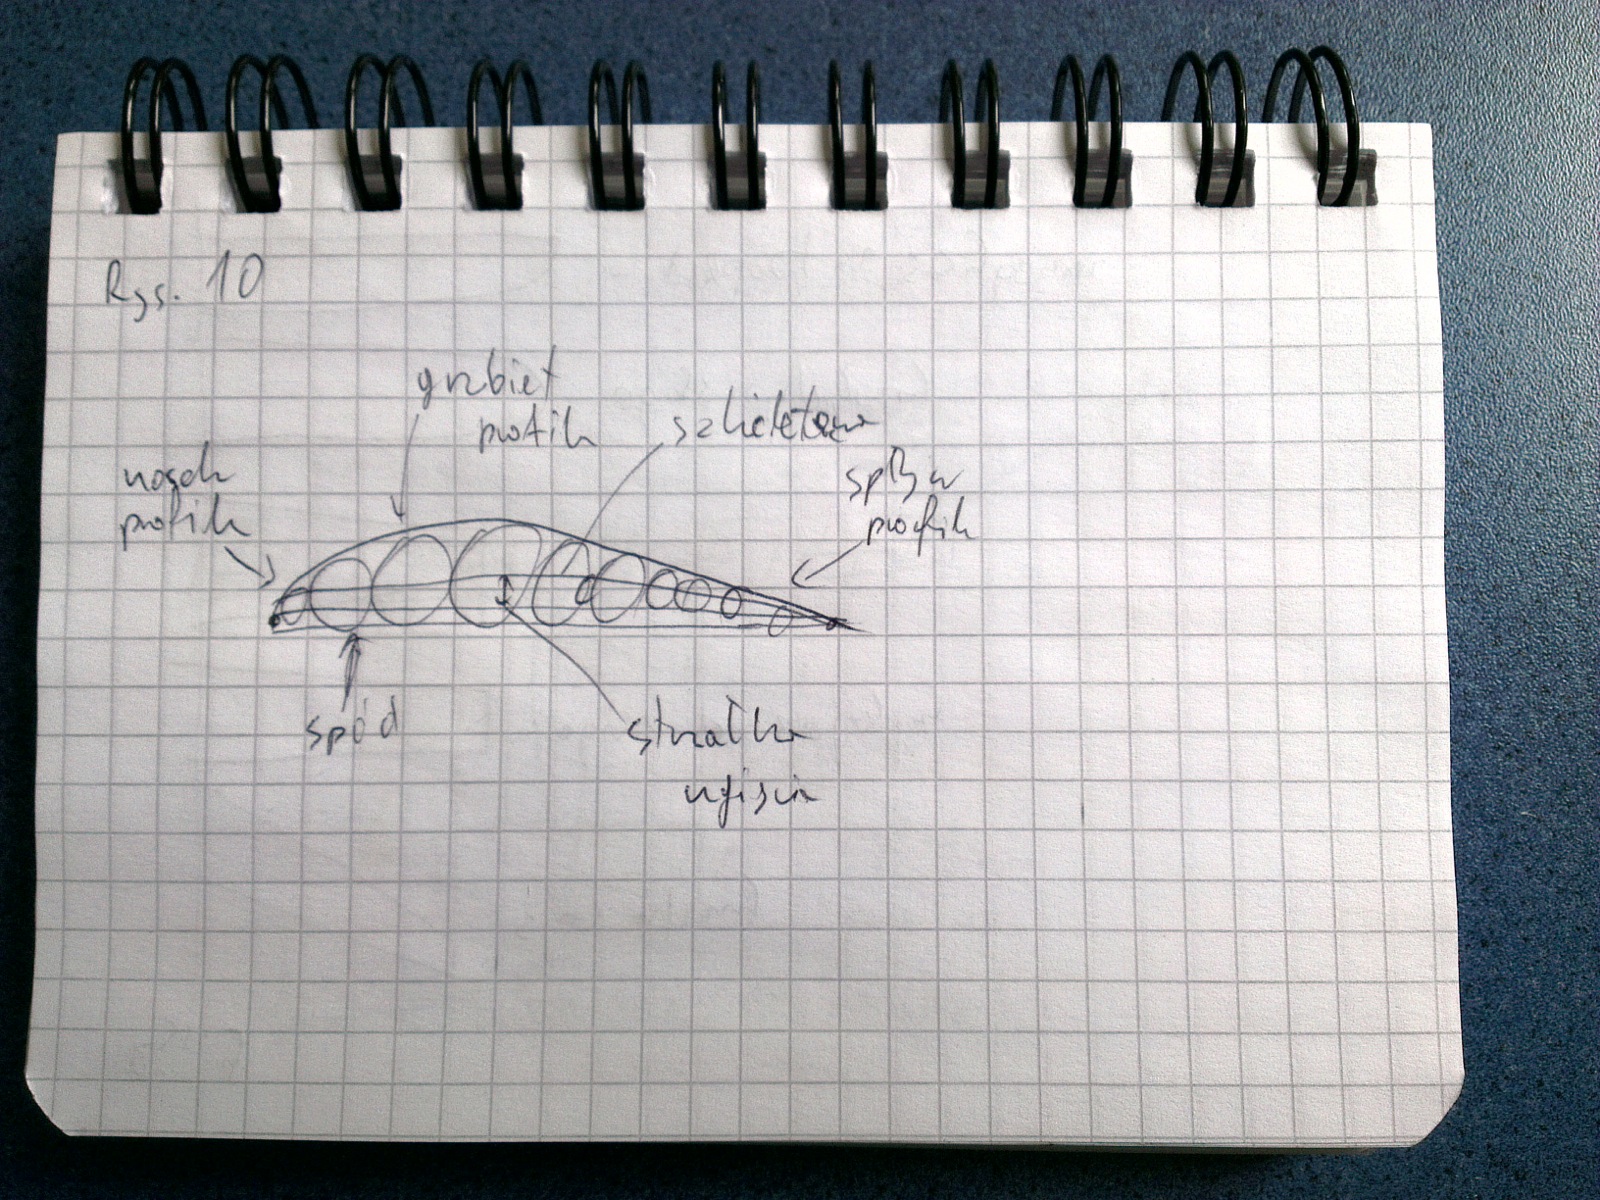 Rys. 10
grzbiet
profilu
szkieletowa
nosek
profilu
spływ
profilu
spód
strzałka
ugięcia